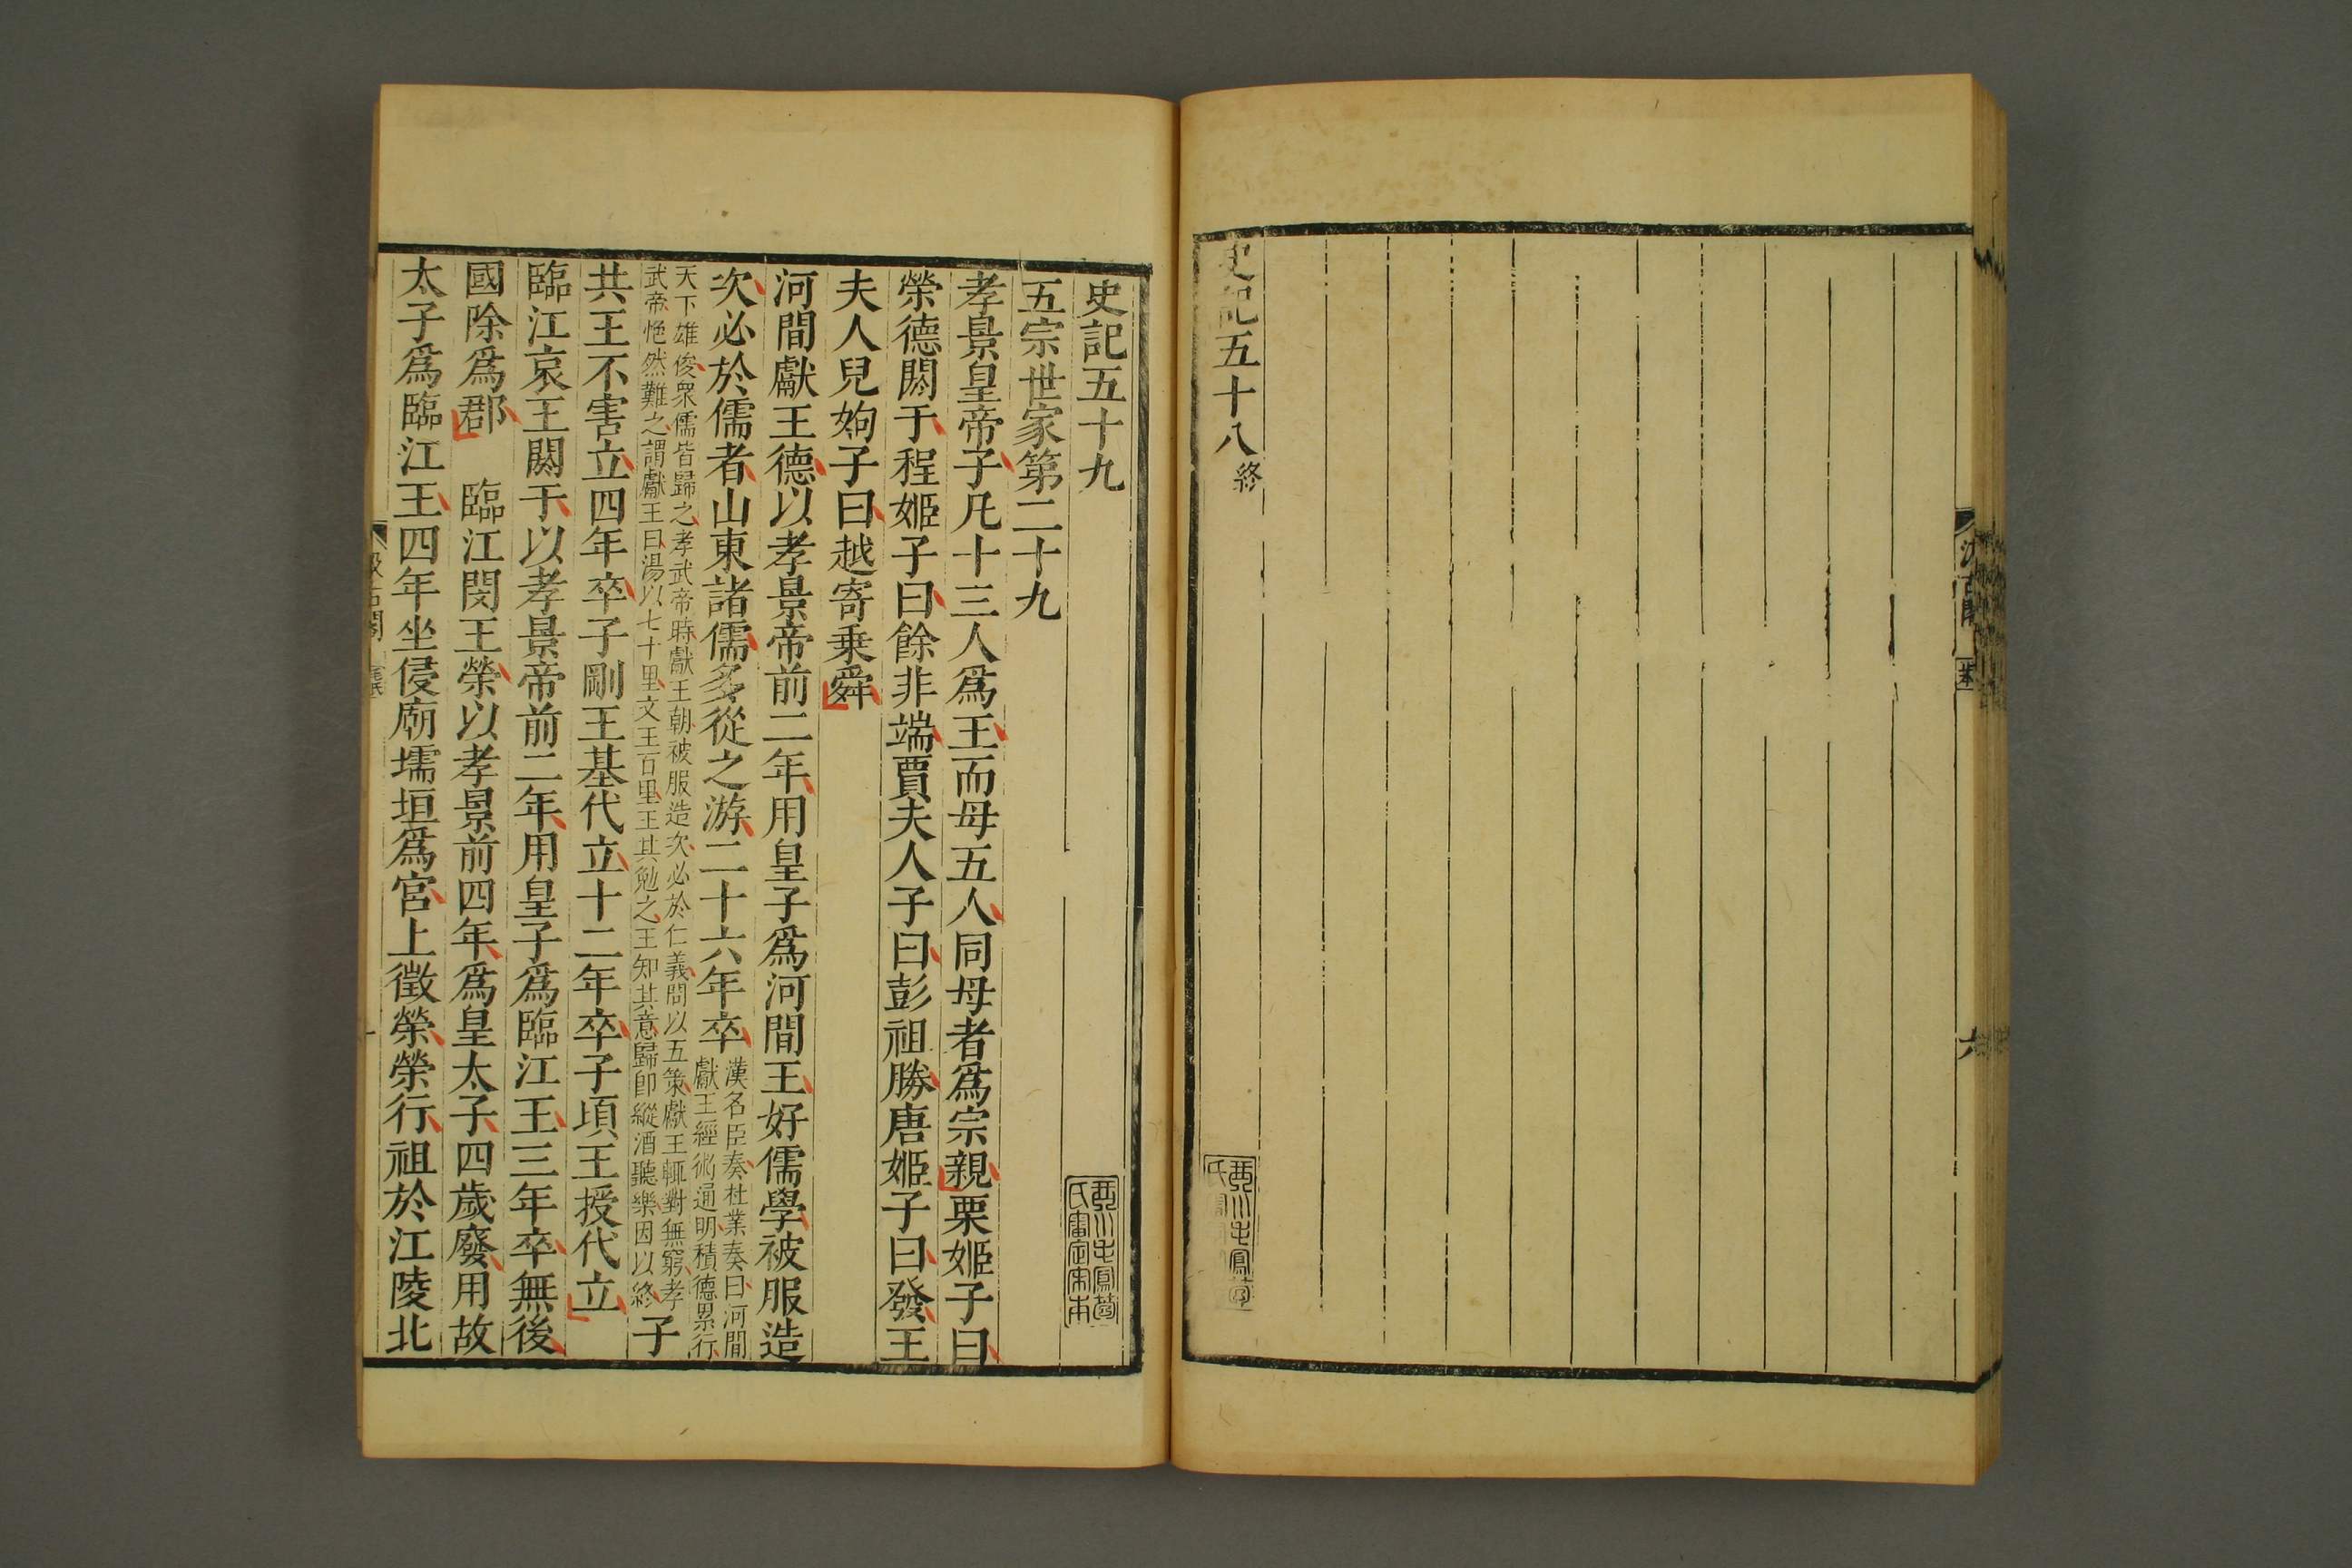 史記五十八終
六
史記五十九
五宗世家第二十九
孝景皇帝子凡十三人爲王而母五人同母者爲宗親栗姬子曰
榮德閼于程姬子曰餘非端賈夫人子曰彭祖勝唐姬子曰發王
夫人兒姁子曰越寄乗舜
河間獻王德以孝景帝前二年用皇子爲河間王好儒學被服造
次必於儒者山東諸儒多從之游二十六年卒漢名臣奏杜業奏曰河間
獻王經術通明積德累行
天下雄俊衆儒皆歸之孝武帝時獻王朝被服造次必於仁義問以五策獻王輒對無窮孝
武帝艴然難之謂獻王曰湯以七十里文王百里王其勉之王知其意歸卽縱酒聽樂因以終子
共王不害立四年卒子剛王基代立十二年卒子頃王授代立
臨江哀王閼于以孝景帝前二年用皇子爲臨江王三年卒無後
國除爲郡 臨江閔王榮以孝景前四年爲皇太子四歲廢用故
太子爲臨江王四年坐侵廟壖垣爲宮上徵榮榮行祖於江陵北